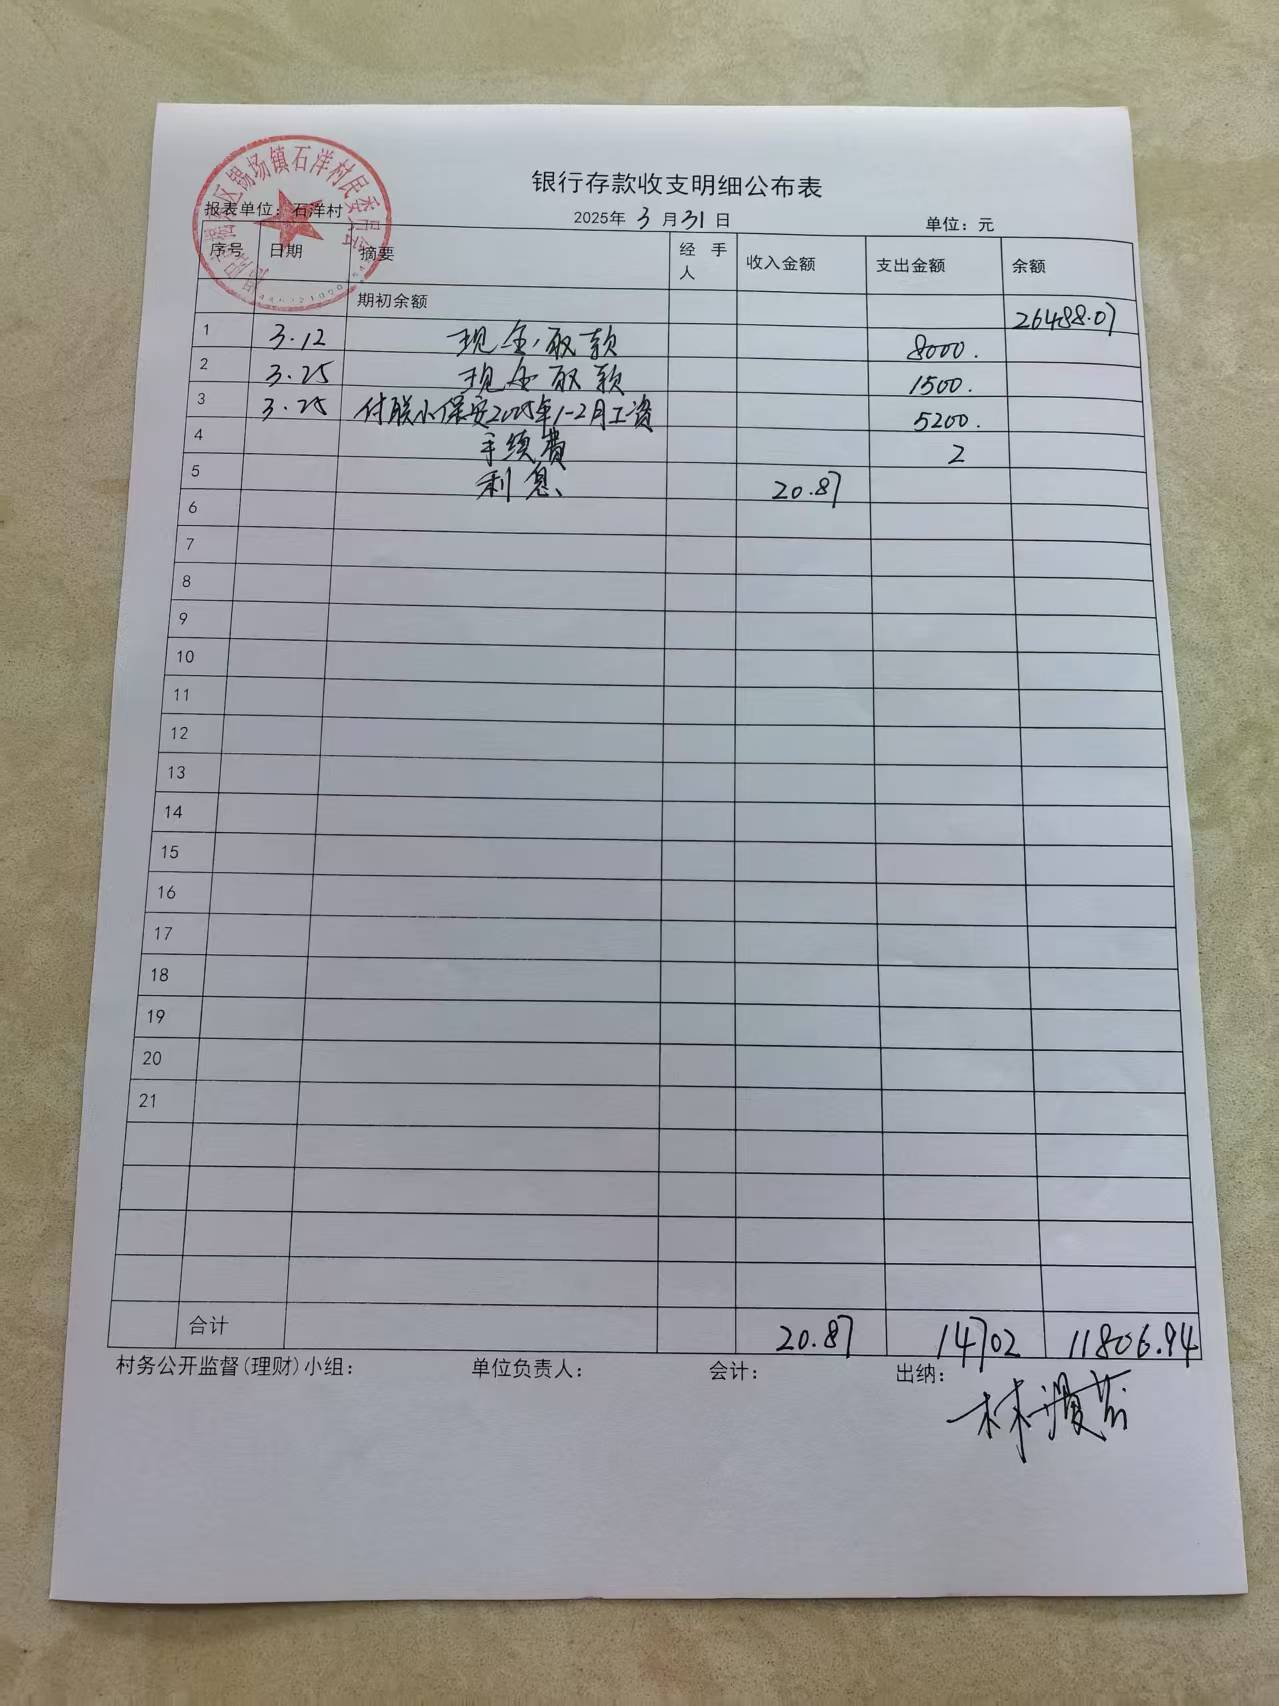 锡场镇石洋村民委员会
银行存款收支明细公布表
报表单位：石洋村 2025年 3 月 31 日 单位：元
序号 日期 摘要 经手人 收入金额 支出金额 余额
期初余额 26488.07
1 3.12 现金取款 8000.
2 3.25 现金取款 1500.
3 3.25 付联小保安2025年1-2月工资 5200.
4 手续费 2
5 利息 20.87
6
7
8
9
10
11
12
13
14
15
16
17
18
19
20
21
合计 20.87 14702 11806.94
村务公开监督(理财)小组： 单位负责人： 会计： 出纳：
林